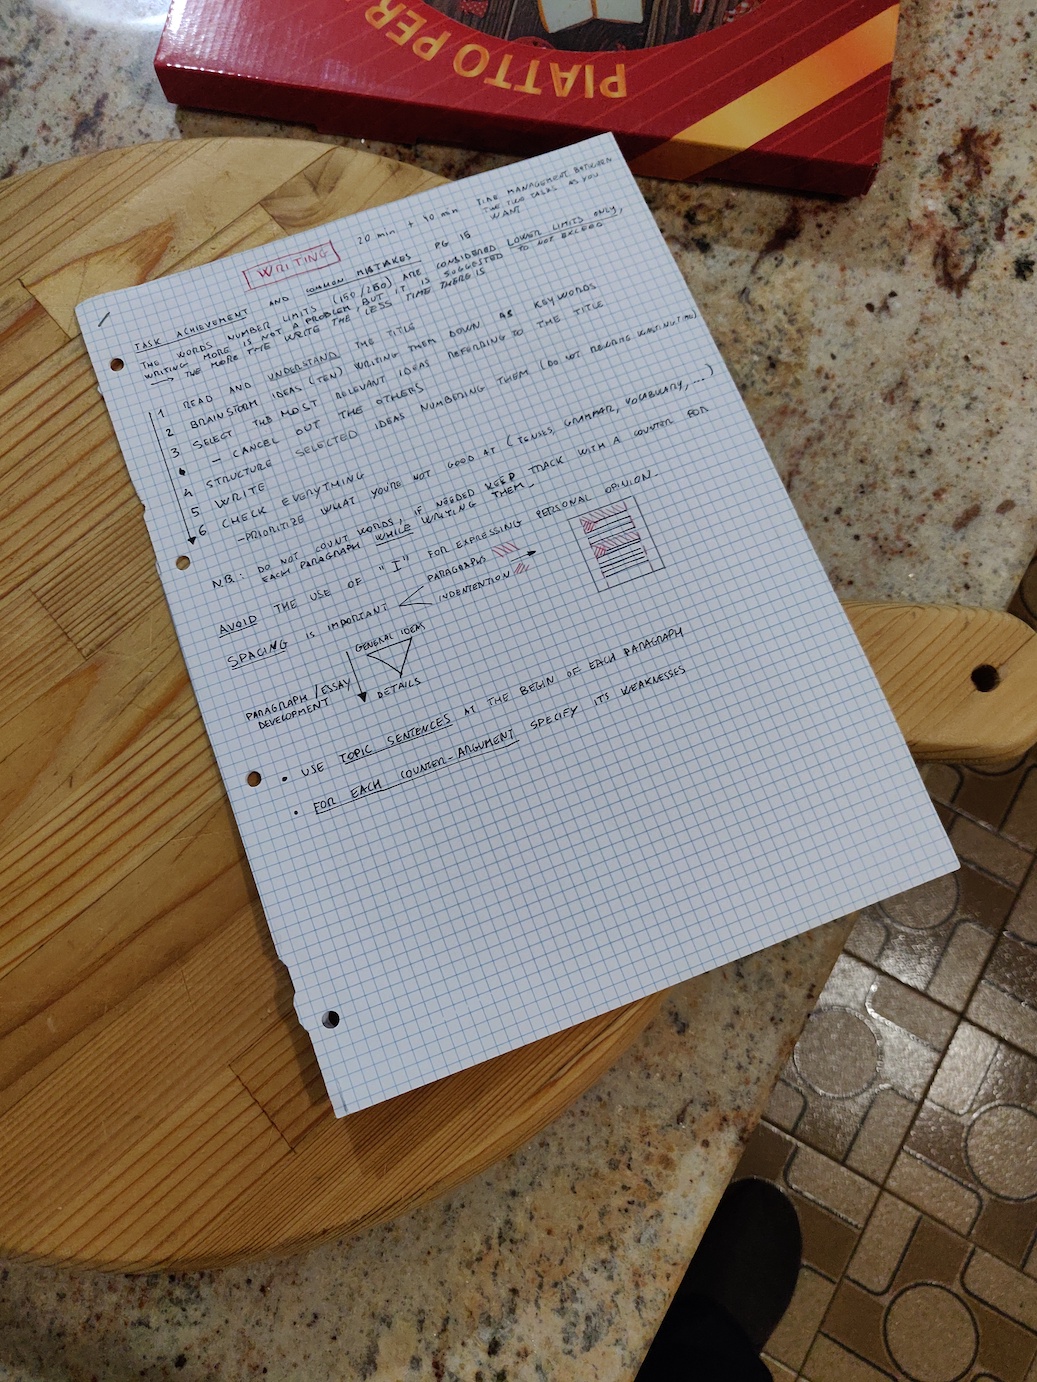 PIATTO PER
WRITING
20 min + 40 min TIME MANAGEMENT BETWEEN
THE TWO TASKS AS YOU
WANT
TASK ACHIEVEMENT AND COMMON MISTAKES PG 15
THE WORDS NUMBER LIMITS (150/250) ARE CONSIDERED LOWER LIMITS ONLY,
WRITING MORE IS NOT A PROBLEM, BUT IT IS SUGGESTED TO NOT EXCEED
→ THE MORE THE WRITE THE LESS TIME THERE IS
1 READ AND UNDERSTAND THE TITLE
2 BRAINSTORM IDEAS (TEN) WRITING THEM DOWN AS KEYWORDS
3 SELECT THE MOST RELEVANT IDEAS REFERRING TO THE TITLE
- CANCEL OUT THE OTHERS
4 STRUCTURE SELECTED IDEAS NUMBERING THEM (DO NOT REWRITE WASTING TIME)
5 WRITE
6 CHECK EVERYTHING
-PRIORITIZE WHAT YOU'RE NOT GOOD AT (TENSES, GRAMMAR, VOCABULARY, ...)
N.B.: DO NOT COUNT WORDS, IF NEEDED KEEP TRACK WITH A COUNTER FOR
EACH PARAGRAPH WHILE WRITING THEM.
AVOID THE USE OF "I" FOR EXPRESSING PERSONAL OPINION.
SPACING IS IMPORTANT
PARAGRAPHS
INDENTENTION
PARAGRAPH/ESSAY
DEVELOPMENT
GENERAL IDEAS
DETAILS
• USE TOPIC SENTENCES AT THE BEGIN OF EACH PARAGRAPH
• FOR EACH COUNTER-ARGUMENT SPECIFY ITS WEAKNESSES